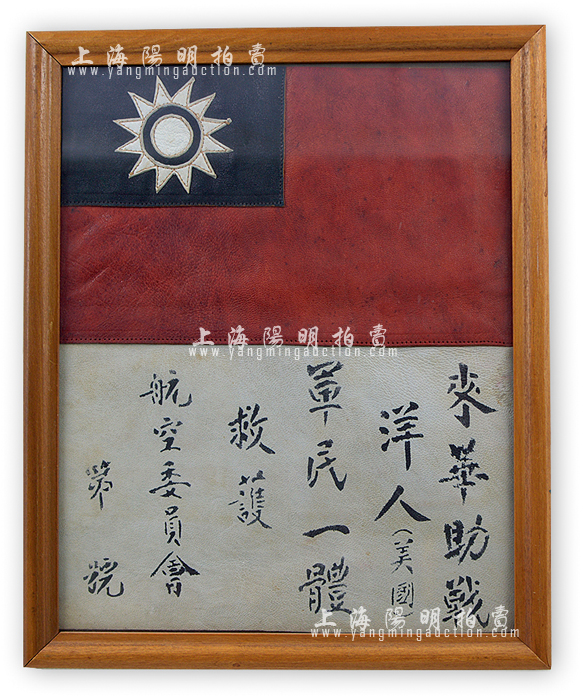 上海陽明拍賣
www.yangmingauction.com
上海陽明拍賣
www.yangmingauction.com
来華助戰
洋人(美國
軍民一體
救護
航空委員會
第 號
上海陽明拍賣
www.yangmingauction.com